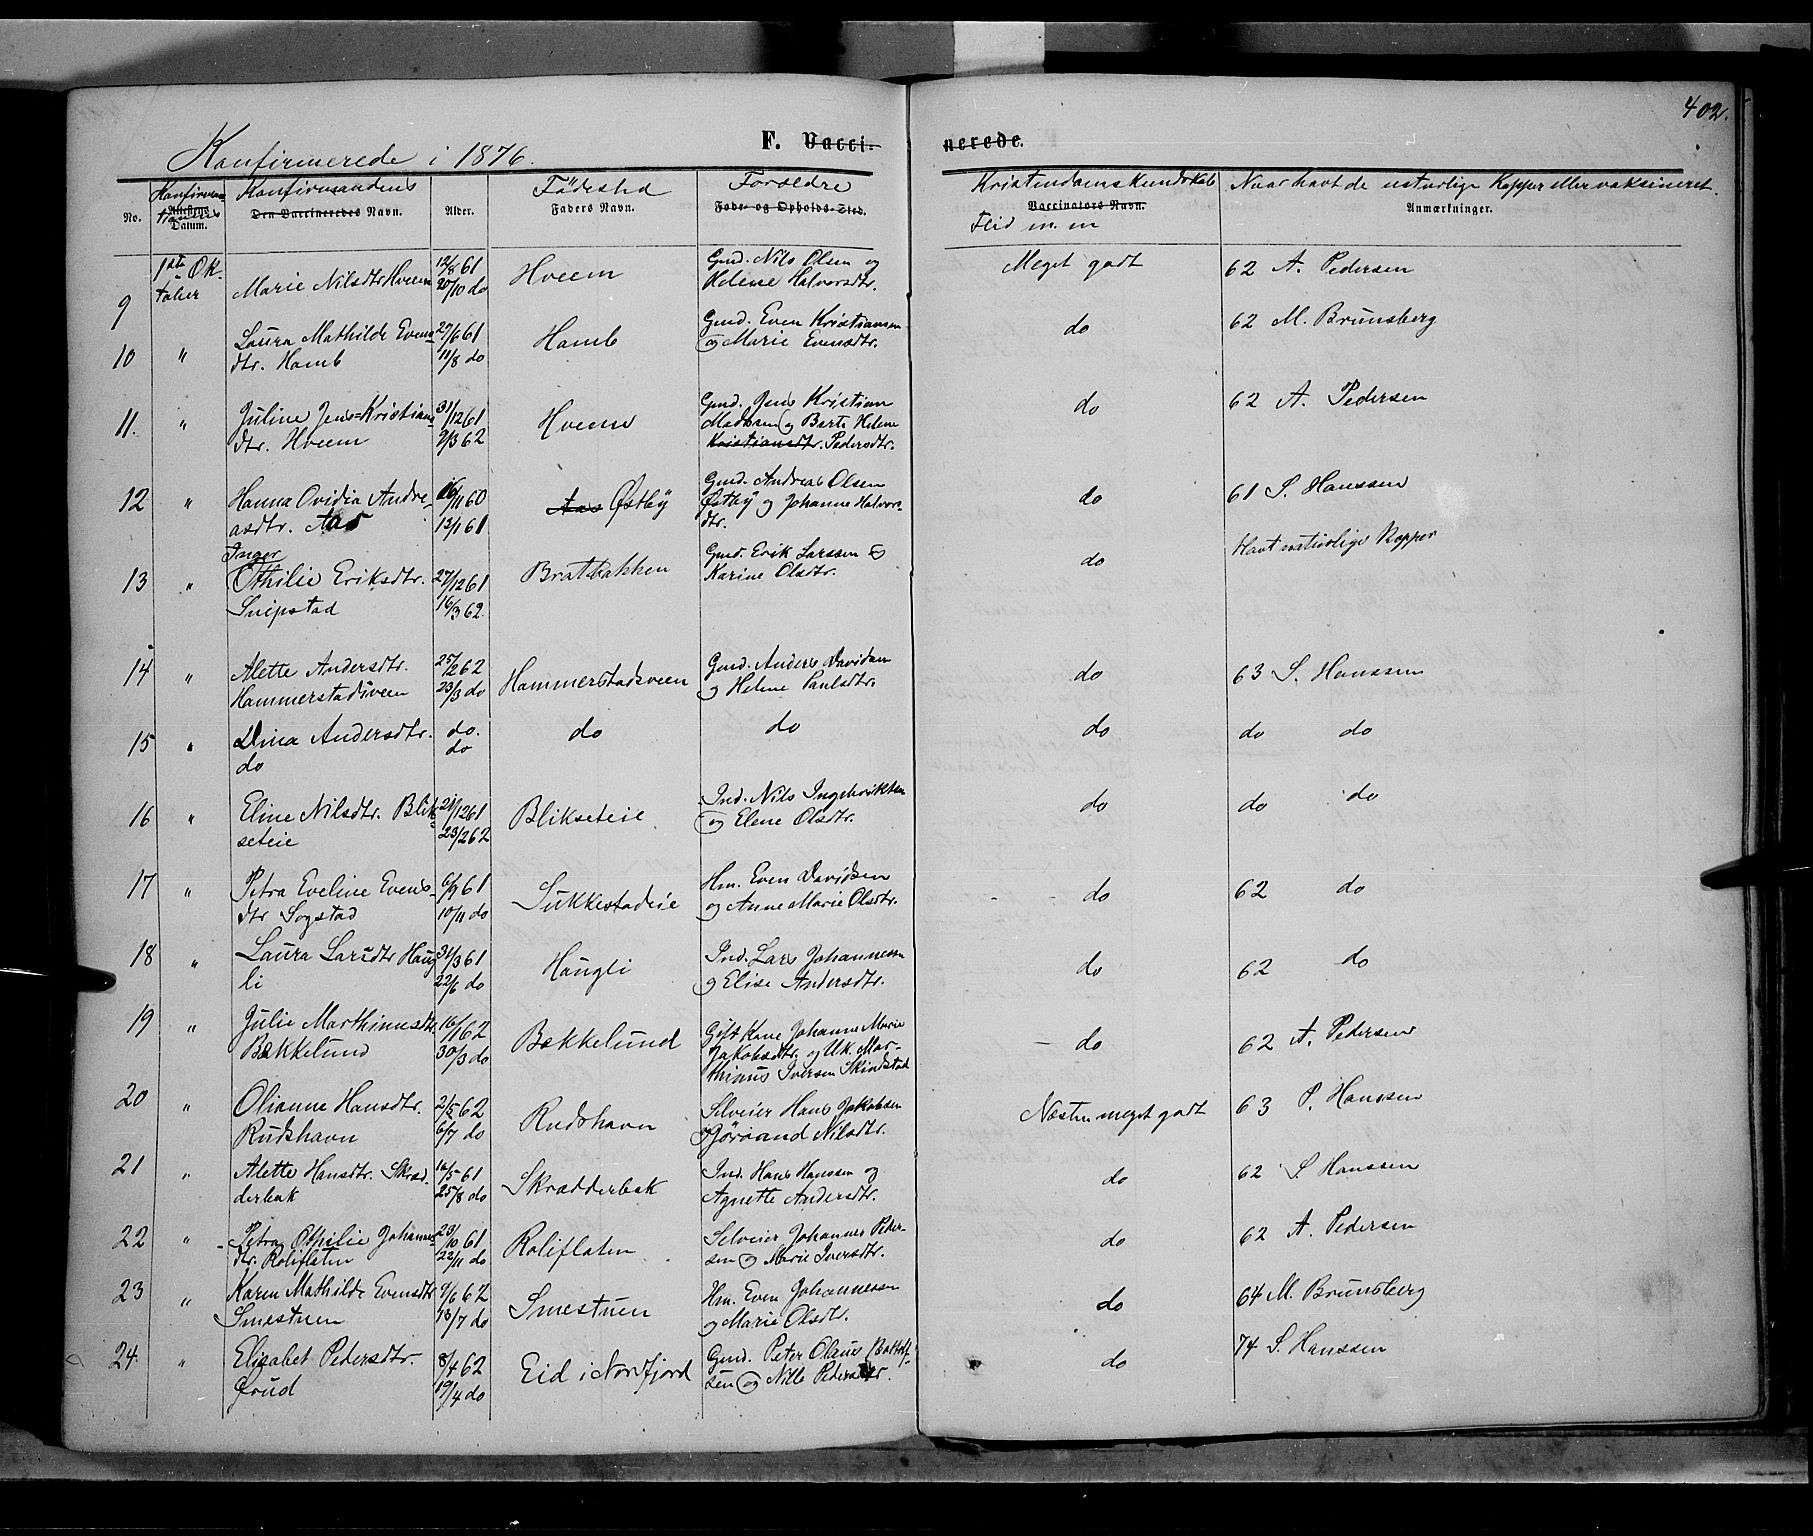 402.
Konfirmerede i 1876.
F. Vacci-
nerede.
No.
Konfirma-
tionens
Attestens
Datum.
Konfirmandens
Den Vaccineredes Navn.
Alder.
Fødested
Faders Navn.
Forældre
Føde- og Opholds-Sted.
Kristendomskundskab
Vaccinators Navn.
Flid m. m
Naar havt de naturlige Kopper eller vaksineret.
Anmærkninger.
9
1ste Ok-
tober
Marie Nilsdtr Hveem
12/8 61
20/10 do
Hveem
Gmd. Nils Olsen og
Helene Halvorsdtr.
Meget godt
62 A. Pedersen
10
"
Laura Mathilde Evens
dtr. Homb
27/6 61
11/8 do
Homb
Gmd. Even Kristiansen
og Marie Evensdtr.
do
62 M. Brunsberg
11.
"
Juline Jens=Kristians
dtr. Hveem
31/12 61
9/3 62
Hveem
Gmd. Jens Kristian
Madssen og Berte Helene
Kristiansdtr. Pedersdtr.
do
62 A. Pedersen
12
"
Hanna Ovidia Andre-
asdtr. Aas
16/11 60
13/1 61
Aas Østby
Gmd. Andreas Olsen
Østby og Johanne Halvors-
dtr.
do
61 S. Hanssen
13
"
Inger
Othilie Eriksdtr.
Snipstad
27/12 61
16/3 62.
Bratbakken
Gmd. Erik Larssen og
Karine Olsdtr.
do
Havt naturlige Kopper
14
"
Alette Andersdtr.
Hammerstadsveen
25/1 62
23/3 do
Hammerstadsveen
Gmd. Anders Davidsen
og Helene Paulsdtr.
do
63 S. Hanssen
15
"
Dina Andersdtr.
do
do.
do
do
do
do
do do
16
"
Eline Nilsdtr. Blik-
seteie
21/12 61
23/2 62
Blikseteie
Ind. Nils Ingebriktsen
og Elene Olsdtr.
do
do do
17
"
Petra Eveline Evens-
dtr Sogstad
6/9 61
10/11 do
Sukkestadeie
Hm. Even Davidsen
og Anne Marie Olsdtr.
do
62 do
18
"
Laura Larsdtr Haug
li
31/3 61
22/6 do
Haugli
Ind. Lars Johannesen
og Elise Andersdtr.
do
62 do
19
"
Julie Marthinusdtr
Bækkelund
16/1 62
30/3 do
Bækkelund
Gift Kone Johanne Marie
Jakobsdtr. og Uk. Mar-
thinus Iversen Skindstad
do
62 A. Pedersen
20
"
Olianne Hansdtr.
Rudshavn
2/5 62
6/7 do
Rudshavn
Selveier Hans Jakobsen
og Jørand Nilsdtr.
Næsten meget godt
63 S. Hanssen
21
"
Alette Hansdtr. Skræd-
derbak
16/5 61
25/8 do
Skrædderbak
Ind. Hans Hanssen og
Agnette Andersdtr.
do
62 S. Hanssen
22
"
Petra Othilie Johannes-
dtr. Roliflaten
23/10 61
22/11 do
Roliflaten
Selveier Johannes Peder-
sen og Marie Iversdtr.
do
62 A. Pedersen
23
"
Karen Mathilde Evensdtr
Smestuen
9/6 62
13/7 do
Smestuen
Hm. Even Johannesen
og Marie Olsdtr.
do
64 M. Brunsberg
24
"
Elisabet Pedersdtr.
Ørud
8/4 62
19/4 do
Eid i Nordfjord
Gmd. Peter Olaus Bottolf-
sen og Nille Pedersdtr.
do
74 S. Hanssen